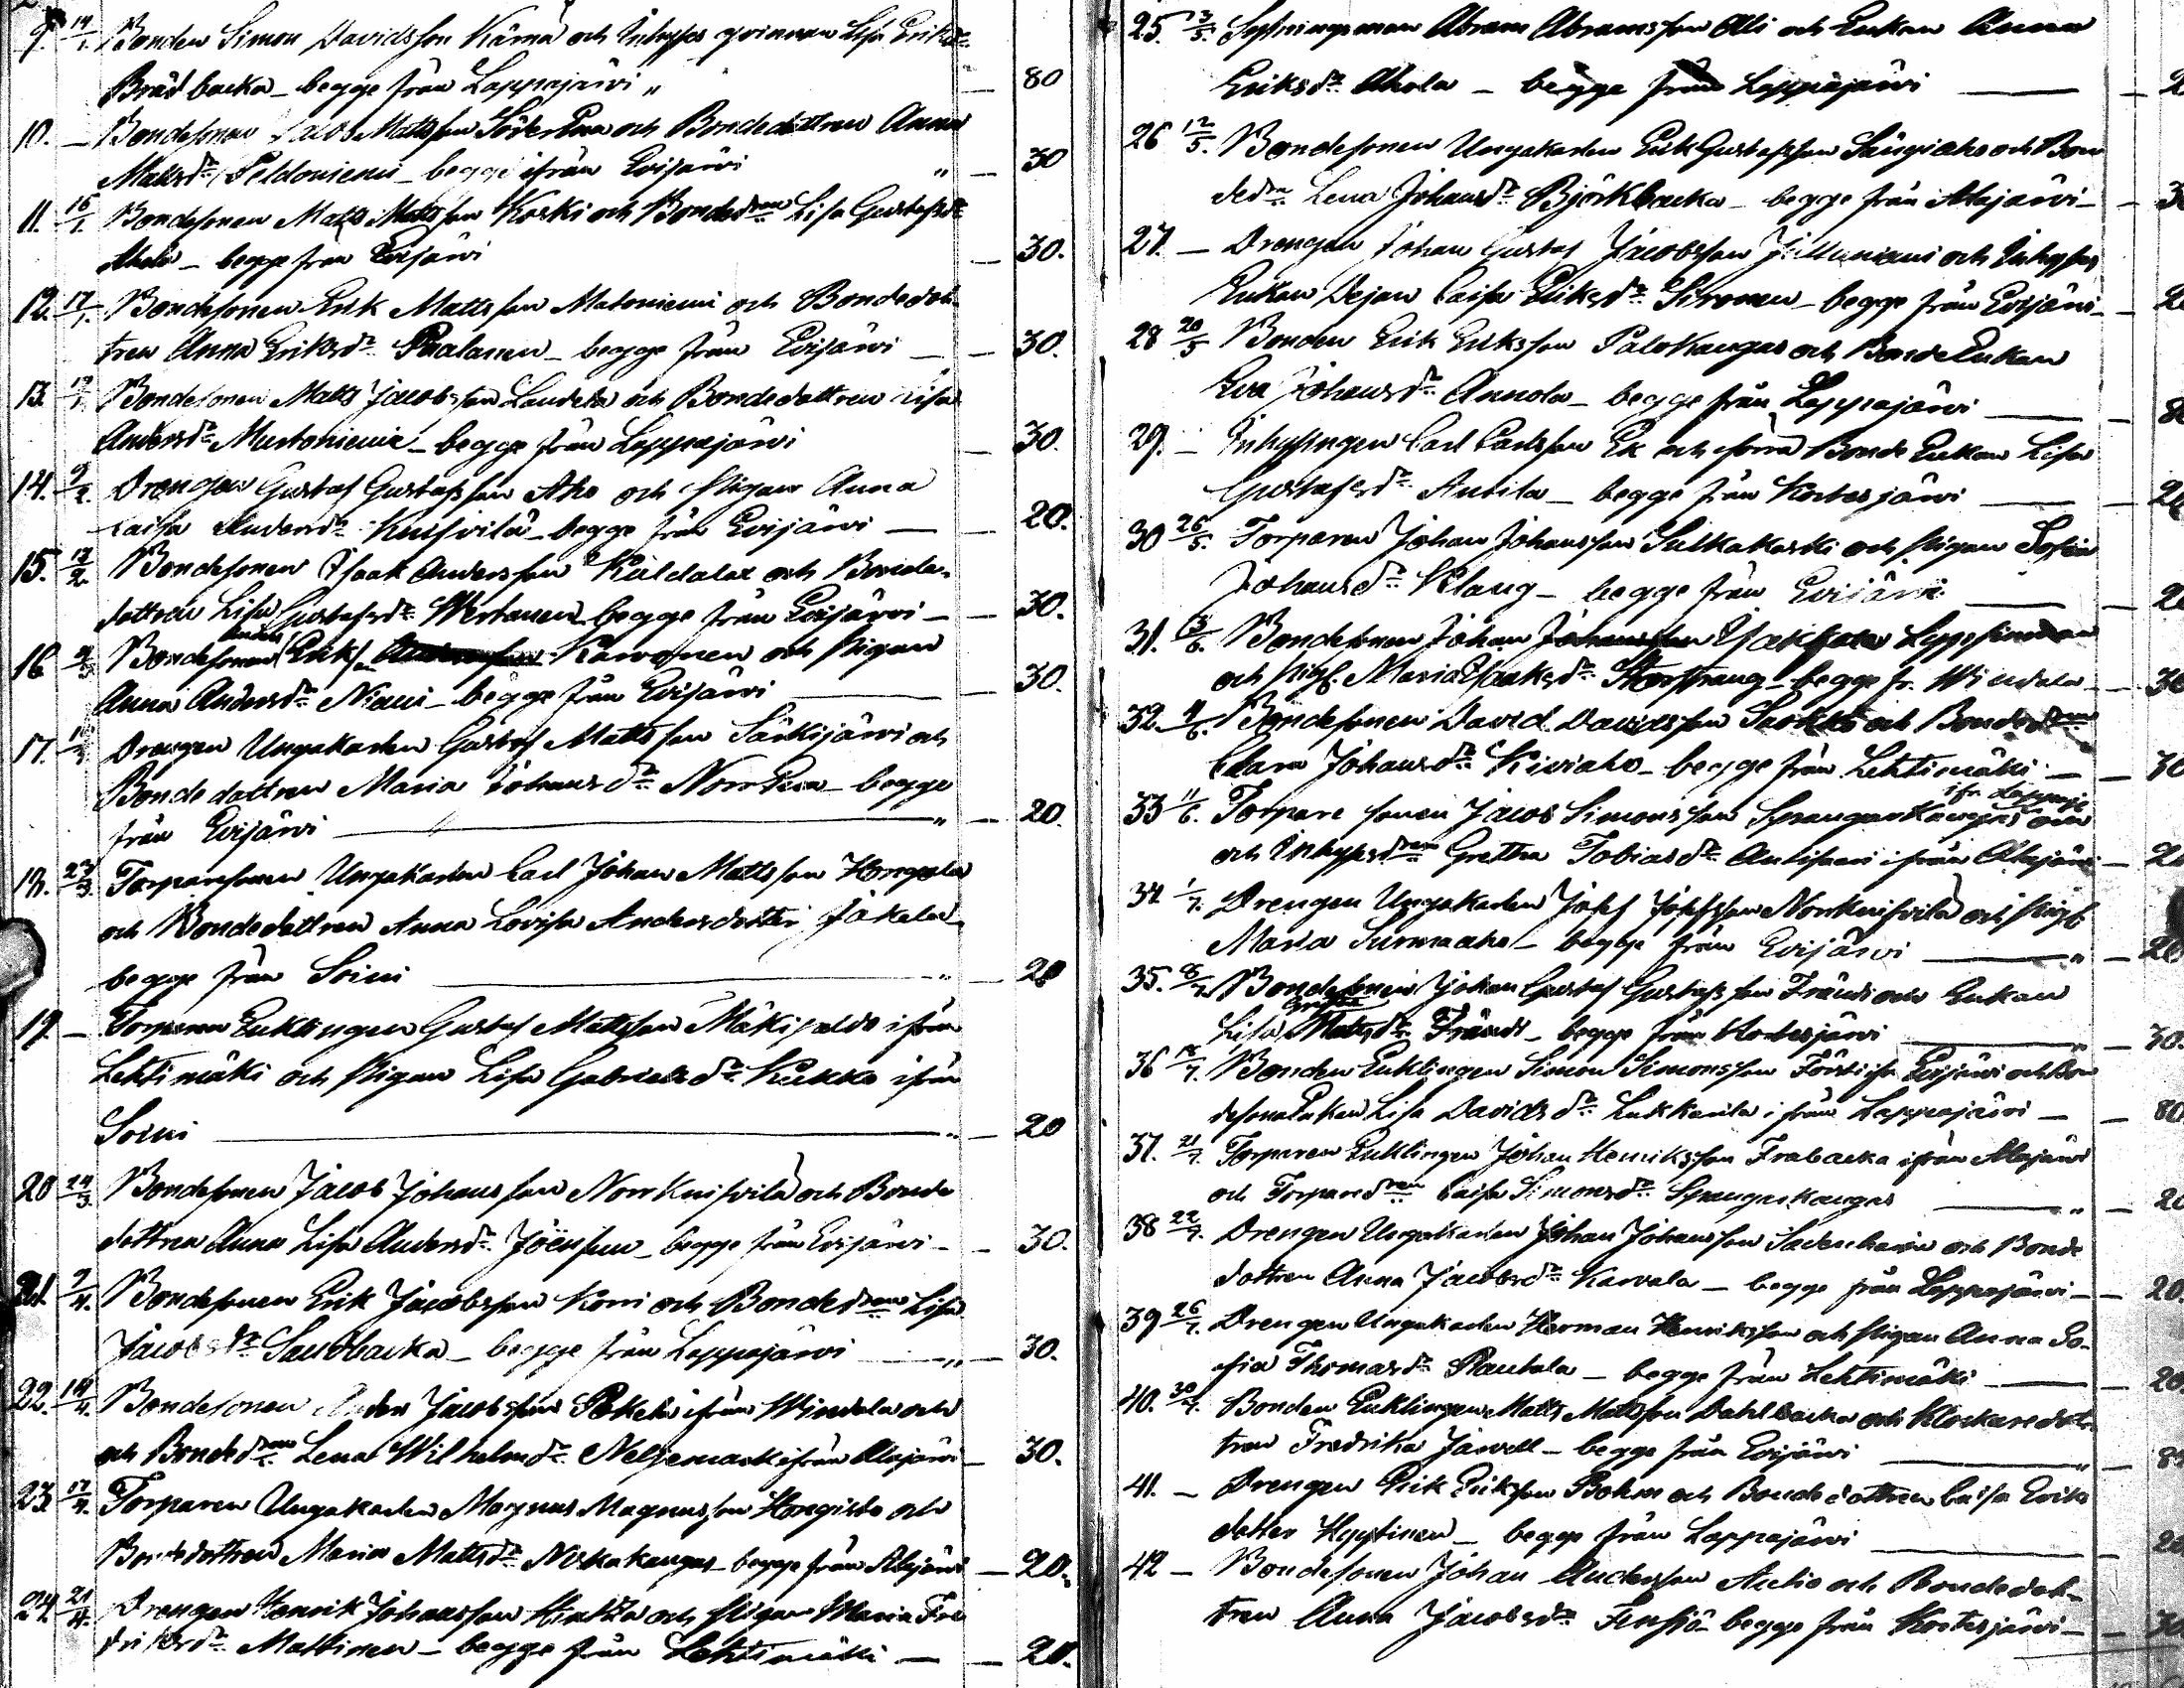 9. 14/1. Bonden Simon Davidsson Kärnä och Inhyses qvinnan Lisa Eriksdr
Brädbacka - begge från Lappajärvi " — 80
10. — Bondesonen Jacob Mattsson Söder och Bondedottren Anna
Mattsdr Peldoniemi - begge ifrån Evijärvi " — 30
11. 16/1. Bondesonen Matts Mattsson Koski och Bondedren Lisa Gustafsdr
Aho - begge från Evijärvi — 30.
12. 17/1. Bondesonen Erik Mattsson Matoniemi och Bondedot-
tren Anna Eriksdr Paalanen - begge från Evijärvi — 30.
13. Bondesonen Matts Jacobsson Laudela och Bondedottren Lisa
Andersdr Mustoniemi - begge från Lappajärvi — 30.
14. Drengen Gustaf Gustafsson Aho och Pigan Anna
Caisa Andersdr Knifvilä - begge från Evijärvi — 20.
15. Bondesonen Isaak Andersson och Bonde-
dottren Lisa Gustafsdr Wertanen begge från Evijärvi — 30.
16 Bondesonen Anders Eriksson Kavonen och Pigan
Anna Andersdr Niemi - begge från Evijärvi — 30.
17. Drengen Ungakarlen Gustaf Mattsson Särkijärvi och
Bondedottren Maria Johansdr - begge
från Evijärvi " — 20.
18. 23/3. Torparesonen Ungakarlen Carl Johan Mattsson Hongola
och Bondedottren Anna Lovisa Andersdotter Jokela
begge från Soini " — 20
19. — Torparen Enklingen Gustaf Mattsson Mäkipeldo ifrån
Lehtimäki och Pigan Lisa Gabrielsdr Kukko ifrån
Soini " — 20
20 24/3. Bondesonen Jacob Johansson Norr Knifvilä och Bonde
dottren Anna Lisa Andersdr Jöensuu - begge från Evijärvi — 30.
21. 7/4. Bondesonen Erik Jacobsson Korri och Bondedren Lisa
Jacobsdr Sandbacka - begge från Lappajärvi " — 30.
22. 14/4. Bondesonen Anders Jacobsson Pokela ifrån Windala och
och Bondedren Lena Wilhelmsdr Neljemark ifrån Alajärvi — 30.
23. 17/4. Torparen Ungakarlen Magnus Magnusson Hongisto och
Bondedottren Maria Mattsdr Niskakangas - begge från Alajärvi — 20.
24. 21/4. Drengen Henrik Johansson och Pigan Maria Fre
driksdr Mattinen - begge från Lehtimäki — 20.
25. 3/5. Sytningsman Abram Abramsson Ali och Enkan Anna
Eriksdr Ahola - begge från Lappajärvi — 2
26 12/5. Bondesonen Ungakarlen Erik Gustafsson Sängiaho och Bon
dedr Lena Johansdr Björkbacka - begge från Alajärvi — 3
27. — Drengen Johan Gustaf Jacobsson och Inhyses
Enkan Caisa Eriksdr Sironen - begge från Evijärvi — 2
28 20/5 Bonden Erik Eriksson Palokangas och BondeEnkan
Eva Johansdr Annola - begge från Lappajärvi — 8
29. — Inhysingen Carl Carlsson Ek och förra Bonde Enkan Lisa
Gustafsdr Antila - begge från Kortesjärvi — 2
30 26/5. Torparen Johan Johansson Sulkakoski och Pigan Sofia
Johansdr Klang - begge från Evijärvi — 2
31. Bondesonen Johan Isaksson
och Pig. Maria Isaksdr - begge fr. Windala — 30
32. 4/6. Bondesonen David Davidsson och Bondedren
Clara Johansdr Kiviaho - begge från Lehtimäki — 30
ifr Lappaj
33 11/6. Torpare sonen Jacob Simonsson Sprangarkangas
och Inhysesdren Gretha Tobiasdr ifrån Alajärvi — 2
34 1/7. Drengen Ungakarlen Josef Josefsson Norrknifvilä och Pig
Maria Surmaaho - begge från Evijärvi " — 20
35. Bondesonen Johan Gustaf Gustafsson Fränti och Enkan
Lisa Gretha Mattsdr Fränti - begge från Kortesjärvi " — 30.
36 Bonden Enklingen Simon Simonsson Försti ifr Evijärvi och Bon
desonaEnkan Lisa Davidsdr Lukkarila ifrån Lappajärvi — 80
37. 21/7. Torparen Enklingen Johan Henriksson Frabacka ifrån Alajärvi
och Torparedren Caisa Simonsdr Sprangarkangas " — 20
38 22/7. Drengen Ungakarlen Johan Johansson och Bonde
dottren Anna Jacobsdr Karvala - begge från Lappajärvi — 20.
39 26/7. Drengen Ungakarlen Herman Henriksson och Pigan Anna So-
fia Thomasdr Rautala - begge från Lehtimäki — 20
40. 30/7. Bonden Enklingen Matts Mattsson Dahlbacka och Klockaredot-
tren Fredrika Järvell - begge från Evijärvi " — 8
41. — Drengen Erik Eriksson Bohm och Bondedottren Caisa Eriks
dotter Hyytinen - begge från Lappajärvi — 20
42 — Bondesonen Johan Andersson Autio och Bondedot-
tren Anna Jacobsdr Finsjö - begge från Kortesjärvi — 30